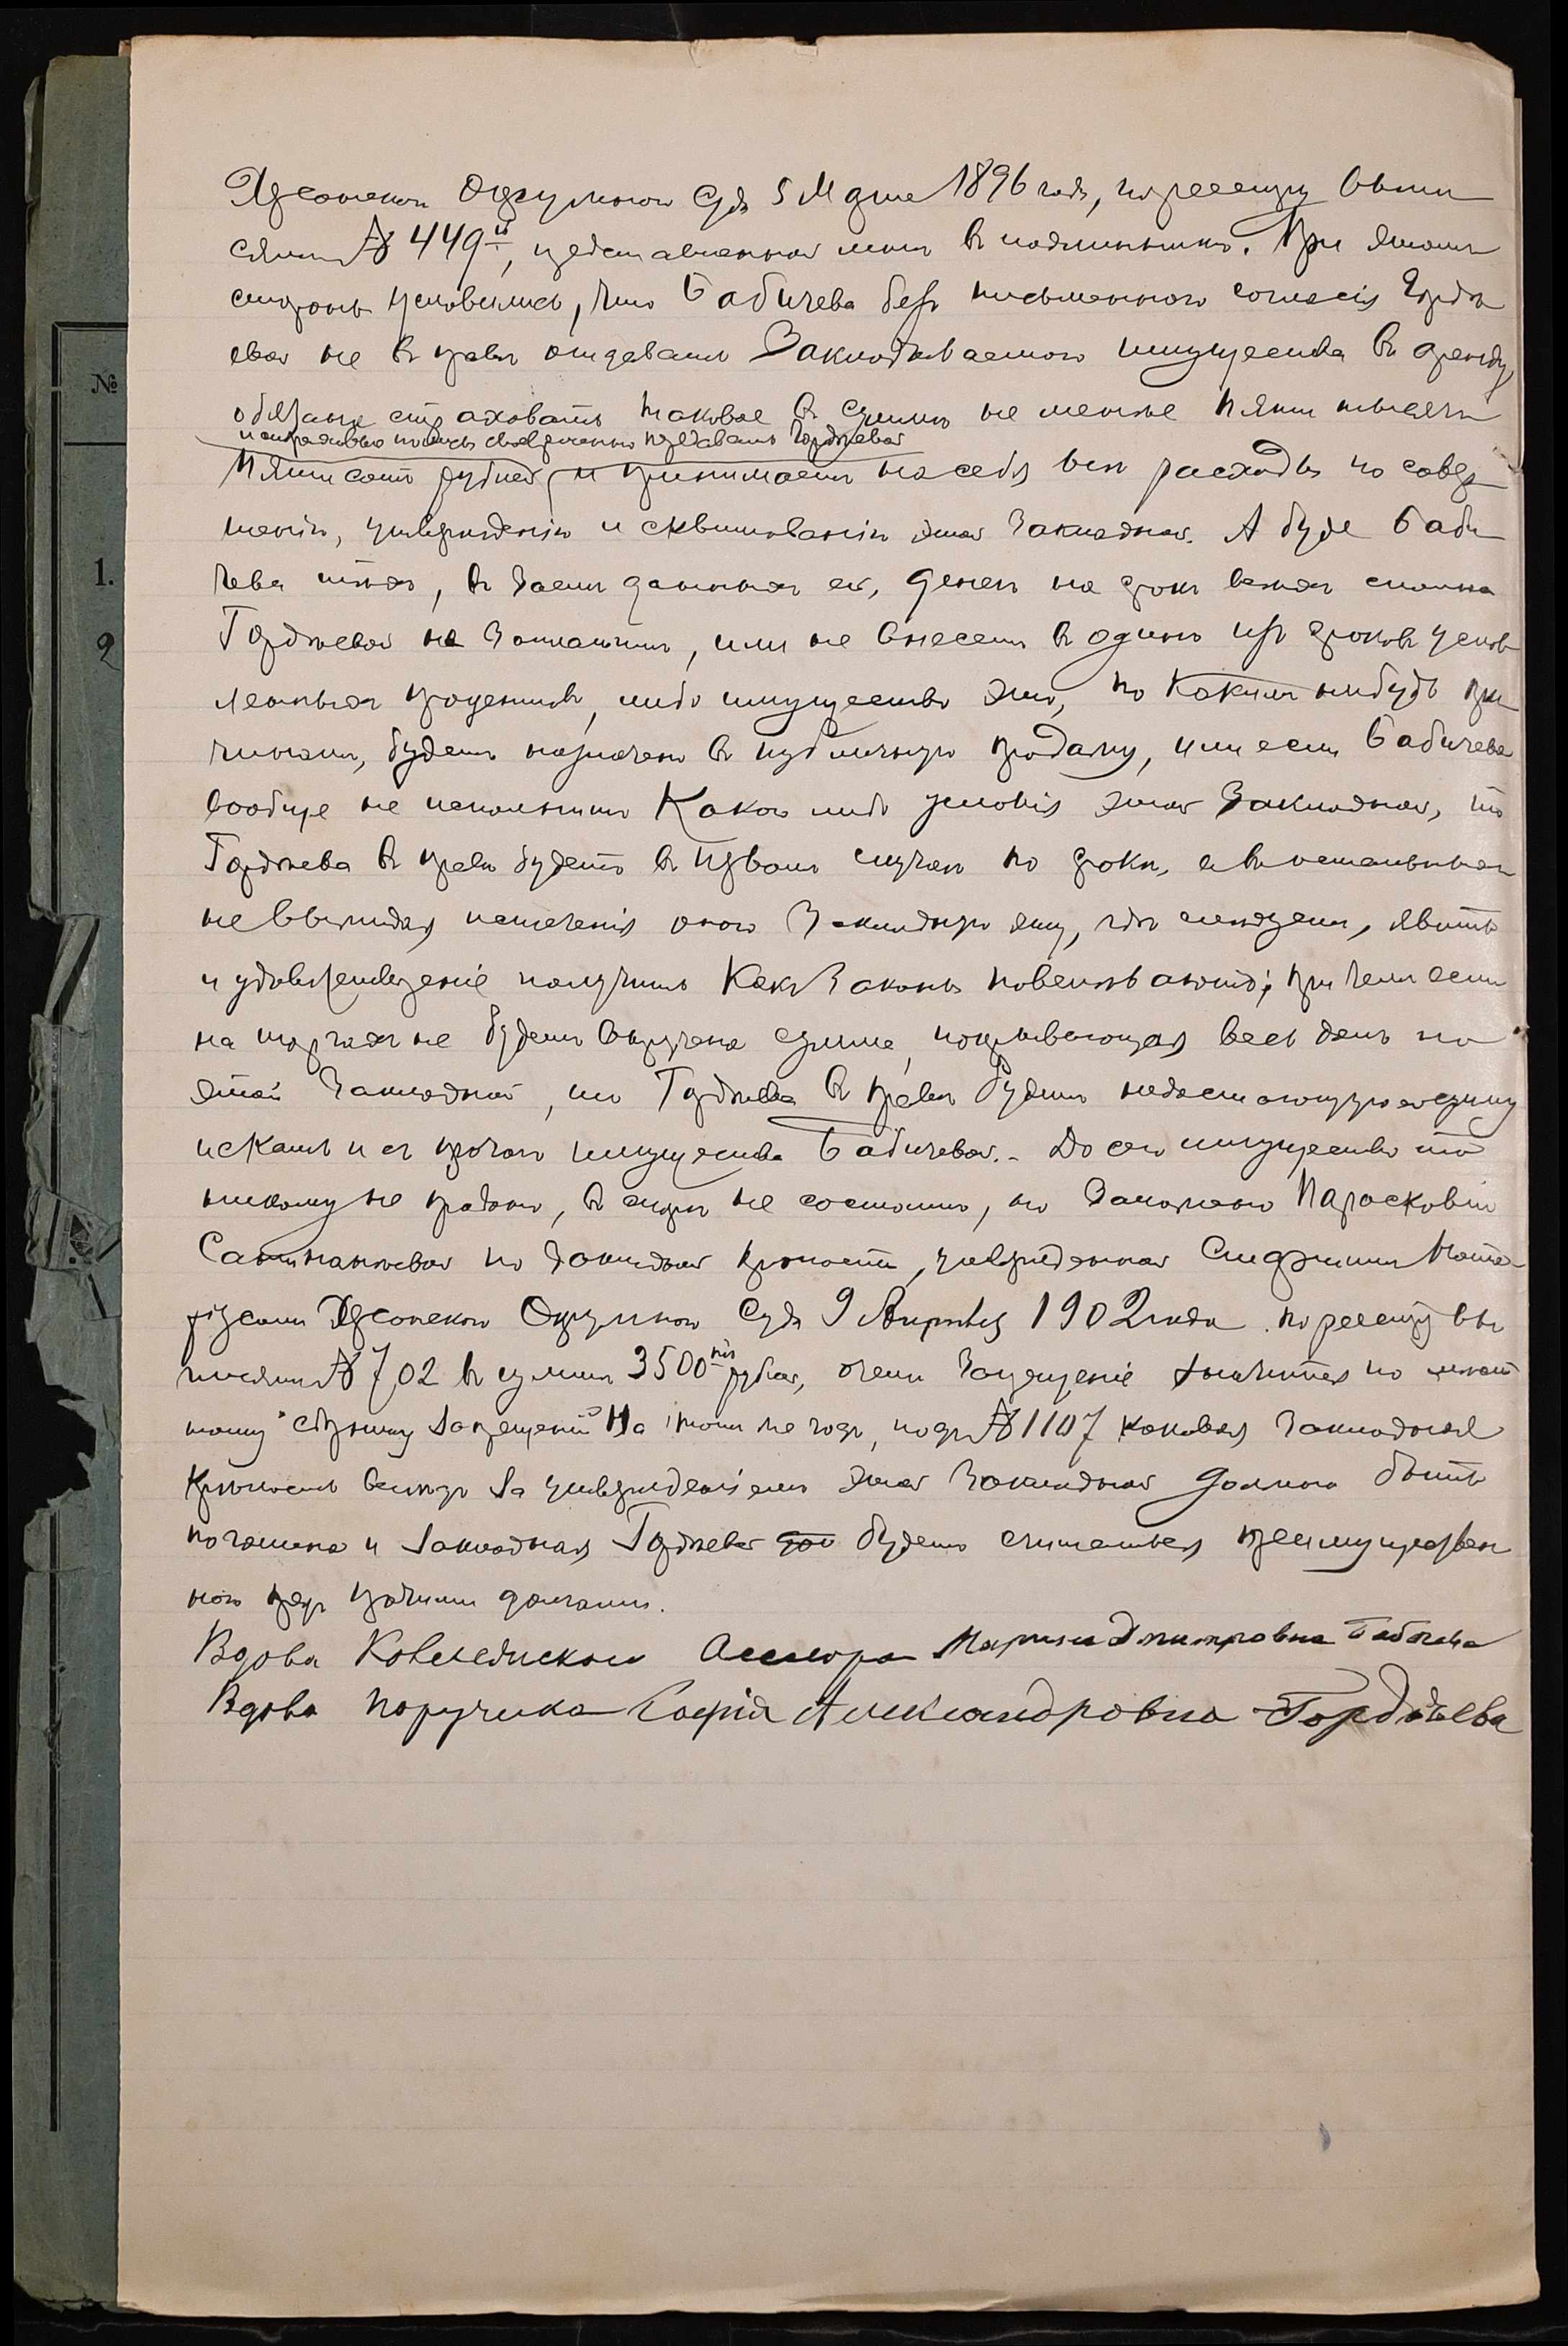 Херсонскаго Окружнаго Суда 5 Марта 1896 года, по реестру выпи
сями № 449й, представленной мнѣ въ подлинникѣ. При этомъ
стороны условились, что Бабичева безъ письменнаго согласія Гордѣ
евой не въ правѣ отдавать закладываемаго имущества въ аренду,
обязана страховать таковое въ суммѣ не менѣе пяти тысячъ
и страховые полисы своевременно передавать Гордѣевой
пятисотъ рублей и принимаетъ на себя всѣ расходы по совер
шенію, утвержденію и сквитованію этой закладной. А буде Баби
чева тѣхъ, въ заемъ данныхъ ей, денегъ на срокъ всѣхъ сполна
Гордѣевой не заплатитъ, или не внесетъ въ одинъ изъ сроковъ услов
ленныхъ процентовъ, либо имущество это, по какимъ нибудь при
чинамъ, будетъ назначено въ публичную продажу, или если Бабичева
вообще не исполнитъ какого либо условія этой закладной, то
Гордѣева въ правѣ будетъ въ первомъ случаѣ по срокѣ, а въ остальныхъ
не выжидая истеченія онаго закладную эту, гдѣ слѣдуетъ, явить
и удовлетвореніе получить какъ законы повелѣваютъ; при чемъ если
на торгахъ не будетъ выручена сумма, покрывающая весь долгъ по
этой закладной, то Гордѣева въ правѣ будетъ недостающую сумму
искать и съ прочаго имущества Бабичевой. - До сего имущество то
никому не продано, въ спорѣ не состоитъ, но заложено Парасковіи
по закладной крѣпости, утвержденной Старшимъ Нота
ріусомъ Херсонскаго Окружнаго Суда 9 Апрѣля 1902 года по реестру вы
писями № 702 въ суммѣ 3500 рублей, о чемъ запрещеніе значится по
тому сборнику запрещеній на тотъ же годъ, подъ № 1107 каковая закладная
крѣпость вслѣдъ за утвержденіемъ этой закладной должна быть
погашена и закладная Гордѣевой будетъ считаться преимуществен
ною предъ прочими долгами.
Вдова Коллежскаго Асессора Марина Дмитровна Бабичева
Вдова поручика Софія Александровна Гордѣева
№
1.
2